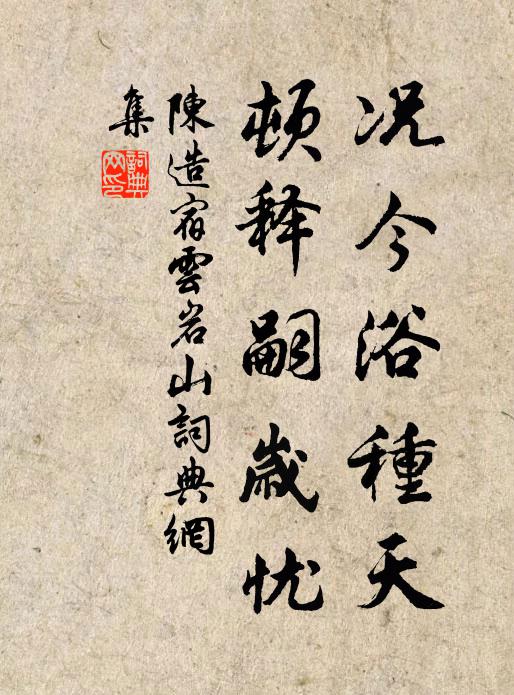 况今浴種天
顿释嗣歲忧
陳造宿雲岩山詞典網
集
詞典网印